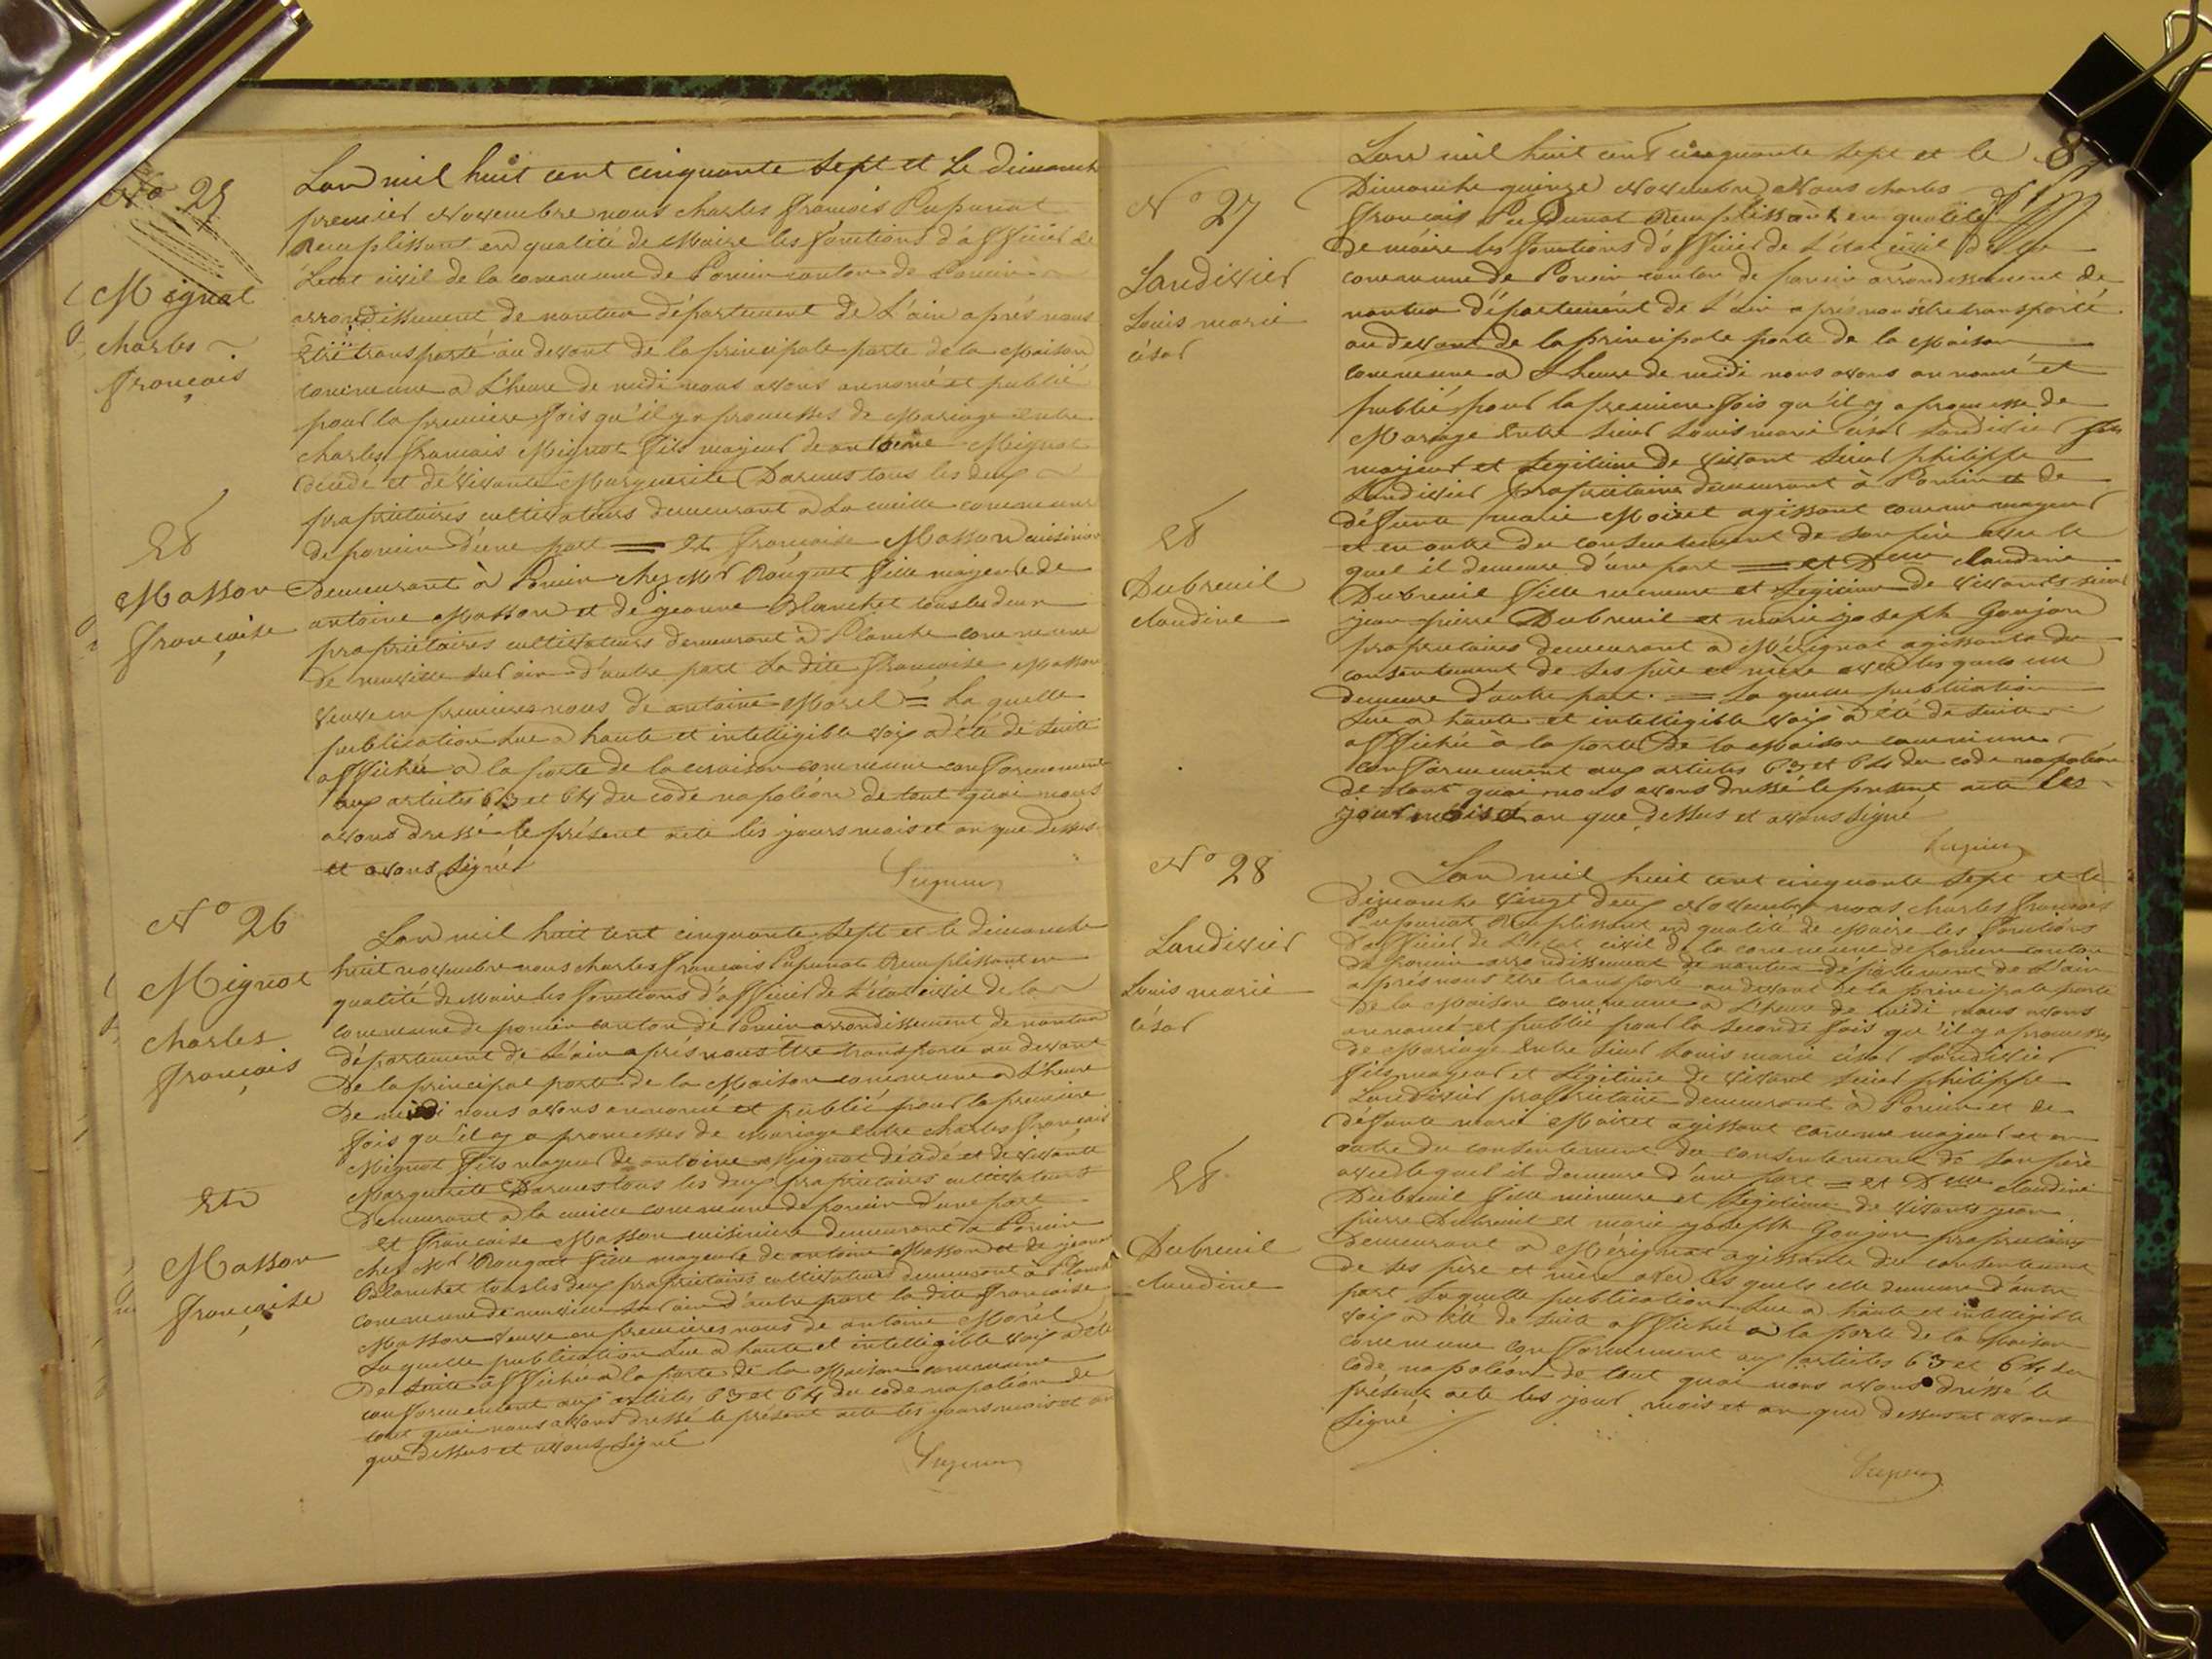 No 25
Mignot
charles
français
Et
Masson
françoise
Lan mil huit cent cinquante sept et Le dimanche
premier Novembre nous charles françois Pupunat
Remplissant en qualité de Maire les fonctions d'officier de
L'etat civil de la commune de Poncin canton de Poncin
arrondissement de nantua département de L'ain aprés nous
être transporté au devant de la principale porte de la Maison
commune a L'heure de midi nous avons annoncé et publié
pour la premiere fois qu'il y a promesses de Mariage entre
charles francais Mignot fils majeur de antoine Mignot
décédé et de vivante Marguerite Darmes tous les deux
propriétaires cultivateurs demeurant a La cueille commune
de poncin d'une part = Et francoise Masson cuisinière
Demeurant à Poncin chez Mr Rouguet fille majeure de
antoine Masson et de jeanne Blanchet tous les deux
propriétaires cultivateurs demeurant à Planche commune
de neuville sur ain d'autre part La dite francoise Masson
veuve en premières nous de antoine Morel = La quelle
publication Lue a haute et intelligible voix a été de suite
affichée a la porte de la maison commune conformement
aux articles 63 et 64 du code napoléon de tout quoi nous
avons dressé le présent acte les jours mois et an que dessus
et avons signé
No 26
Mignot
charles
français
Et
Masson
françoise
Lan mil huit cent cinquante sept et le dimanche
huit novembre nous charles francois Pupunat Remplissant en
qualité de Maire les fonctions d'officier de L'état civil de la
commune de poncin canton de Poncin arrondissement de nantua
département de L'ain aprés nous être transporté au devant
De la principal porte de la Maison commune a L'heure
De midi nous avons annoncé et publié pour la premiere
fois qu'il y a promesses de Mariage entre charles francais
Mignot fils majeur de antoine Mignot décédé et de vivante
Marguerite Darmes tous les deux propriétaires cultivateurs
Demeurant a la cueille commune de poncin d'une part
et francoise Masson cuisinière demeurant à Poncin
chez Mr Rouguet fille majeure de antoine Masson et de jeanne
Blanchet tous les deux propriétaires cultivateurs demeurant à Planche
commune de neuville sur ain d'autre part la dite francoise
Masson veuve en premières nous de antoine Morel
La quelle publication Lue a haute et intelligible voix a été
De suite affichée a la porte de la Maison commune
conformement aux articles 63 et 64 du code napoléon de
tout quoi nous avons dressé le présent acte les jours mois et an
que dessus et avons signé
No 27
Landivier
Louis marie
césar
Et
Dubreuil
claudine
Lan mil huit cent cinquante sept et le
Dimanche quinze Novembre Nous charles
français Pupunat Remplissant en qualité
de maire les fonctions d'officier de L'état civil de la
commune de Poncin canton de poncin arrondissement de
nantua département de L'ain aprés nous être transporté
au devant de la principale porte de la Maison
commune a L'heure de midi nous avons annoncé et
publié pour la premiere fois qu'il y a promesse de
Mariage entre sieur Louis marie césar Landivier fils
majeur et Legitime de vivant sieur philippe
Landivier propriétaire demeurant à Poncin et de
défunte marie Moiret agissant comme majeur
et en outre du consentement de son père avec le
quel il demeure d'une part = et Delle claudine
Dubreuil fille mineure et Légitime de vivants sieur
jean pierre Dubreuil et marie joseph Goujon
propriétaires demeurant a Mérignat agissante du
consentement de ses père et mère avec les quels elle
demeure d'autre part. = La quelle publication
Lue a haute et intelligible voix a été de suite
affichée à la porte De la Maison commune
conformement aux articles 63 et 64 du code napoléon
de tout quoi nous avons dressé le présent acte les
jour mois et an que dessus et avons signé
No 28
Landivier
Louis marie
césar
Et
Dubreuil
claudine
Lan mil huit cent cinquante sept et le
Dimanche vingt deux Novembre nous charles francois
Pupunat Remplissant en qualité de Maire les fonctions
d'officier de L'état civil de la commune de poncin canton
de poncin arrondissement de nantua département de L'ain
aprés nous être transporté au devant de la principale porte
de la Maison commune a L'heure de midi nous avons
annoncé et publié pour la seconde fois qu'il y a promesses
de Mariage entre sieur Louis marie césar Landivier
fils majeur et Légitime de vivant sieur philippe
Landivier propriétaire demeurant à Poncin et de
défunte marie Moiret agissant comme majeur et en
outre du consentement du consentement de son père
avec lequel il demeure d'une part = et Delle claudine
Dubreuil fille mineure et Légitime de vivants jean
pierre Dubreuil et marie joseph Goujon propriétaires
Demeurant a Mérignat agissante du consentement
de ses père et mère avec les quels elle demeure d'autre
part Laquelle publication Lue a haute et intelligible
voix a été de suite affichée a la porte de la Maison
commune conformement aux articles 63 et 64 du
Code napoléon de tout quoi nous avons dressé le
présent acte les jour mois et an que dessus et avons
signé